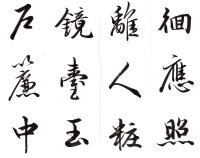 徊應照
離人粧
鏡臺玉
戶簾中